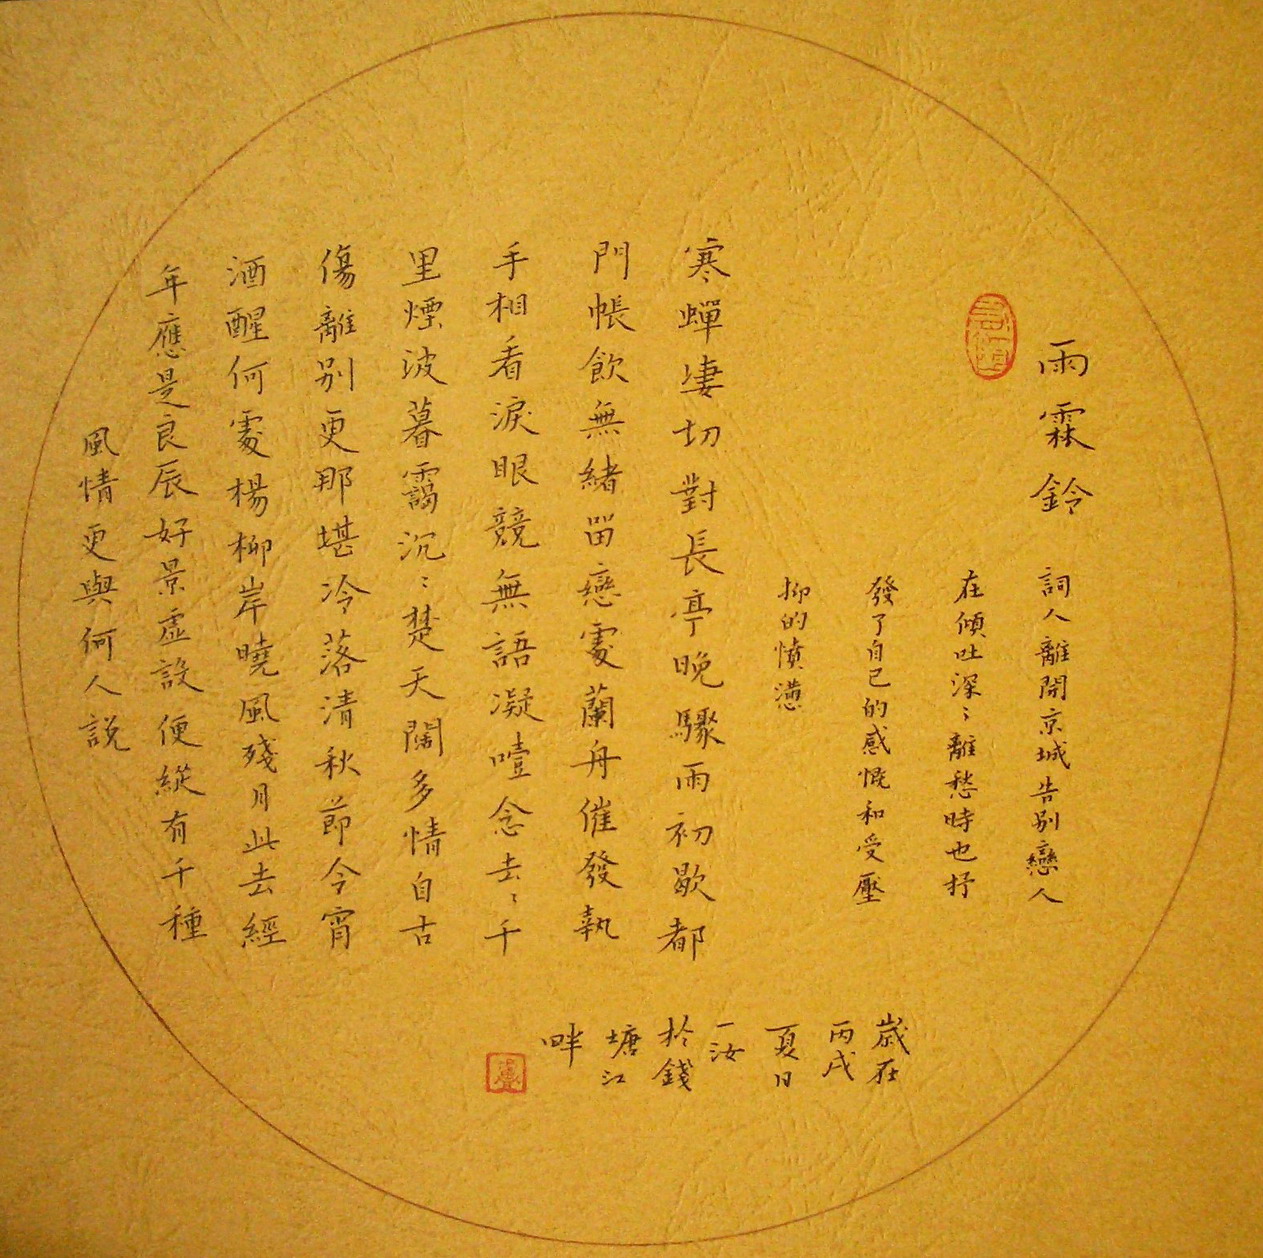 雨霖鈴 詞人離開京城告別戀人
在傾吐深〻離愁時也抒
發了自己的感慨和受壓
抑的憤懣
寒蟬淒切對長亭晚驟雨初歇都
門帳飲無緒留戀處蘭舟催發執
手相看淚眼競無語凝噎念去〻千
里煙波暮靄沉〻楚天闊多情自古
傷離別更那堪冷落清秋節今宵
酒醒何處楊柳岸曉風殘月此去經
年應是良辰好景虛設便縱有千種
風情更與何人說
歲在
丙戌
夏日
一汝
於錢
塘江
畔